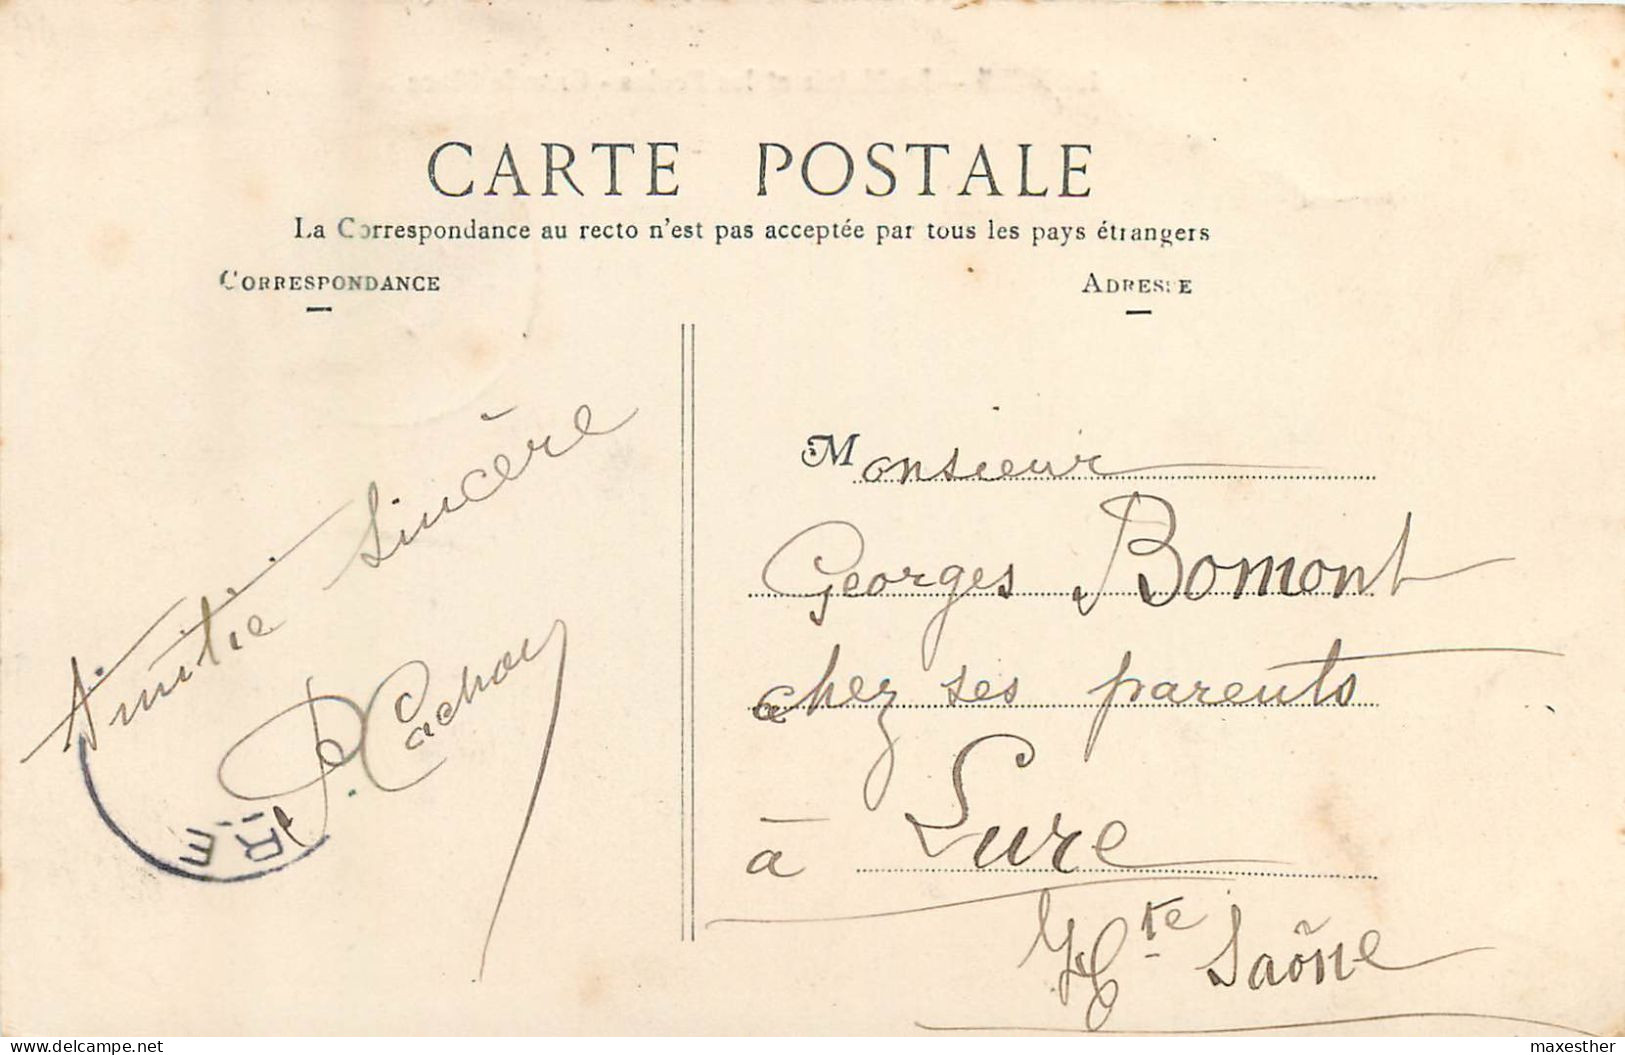 CARTE POSTALE
La Correspondance au recto n'est pas acceptée par tous les pays étrangers
CORRESPONDANCE
ADRESSE
Amitié sincère
Monsieur
Georges Bomont
chez ses parents
à Lure
Hte Saône
RE
delcampe.net
maxesther